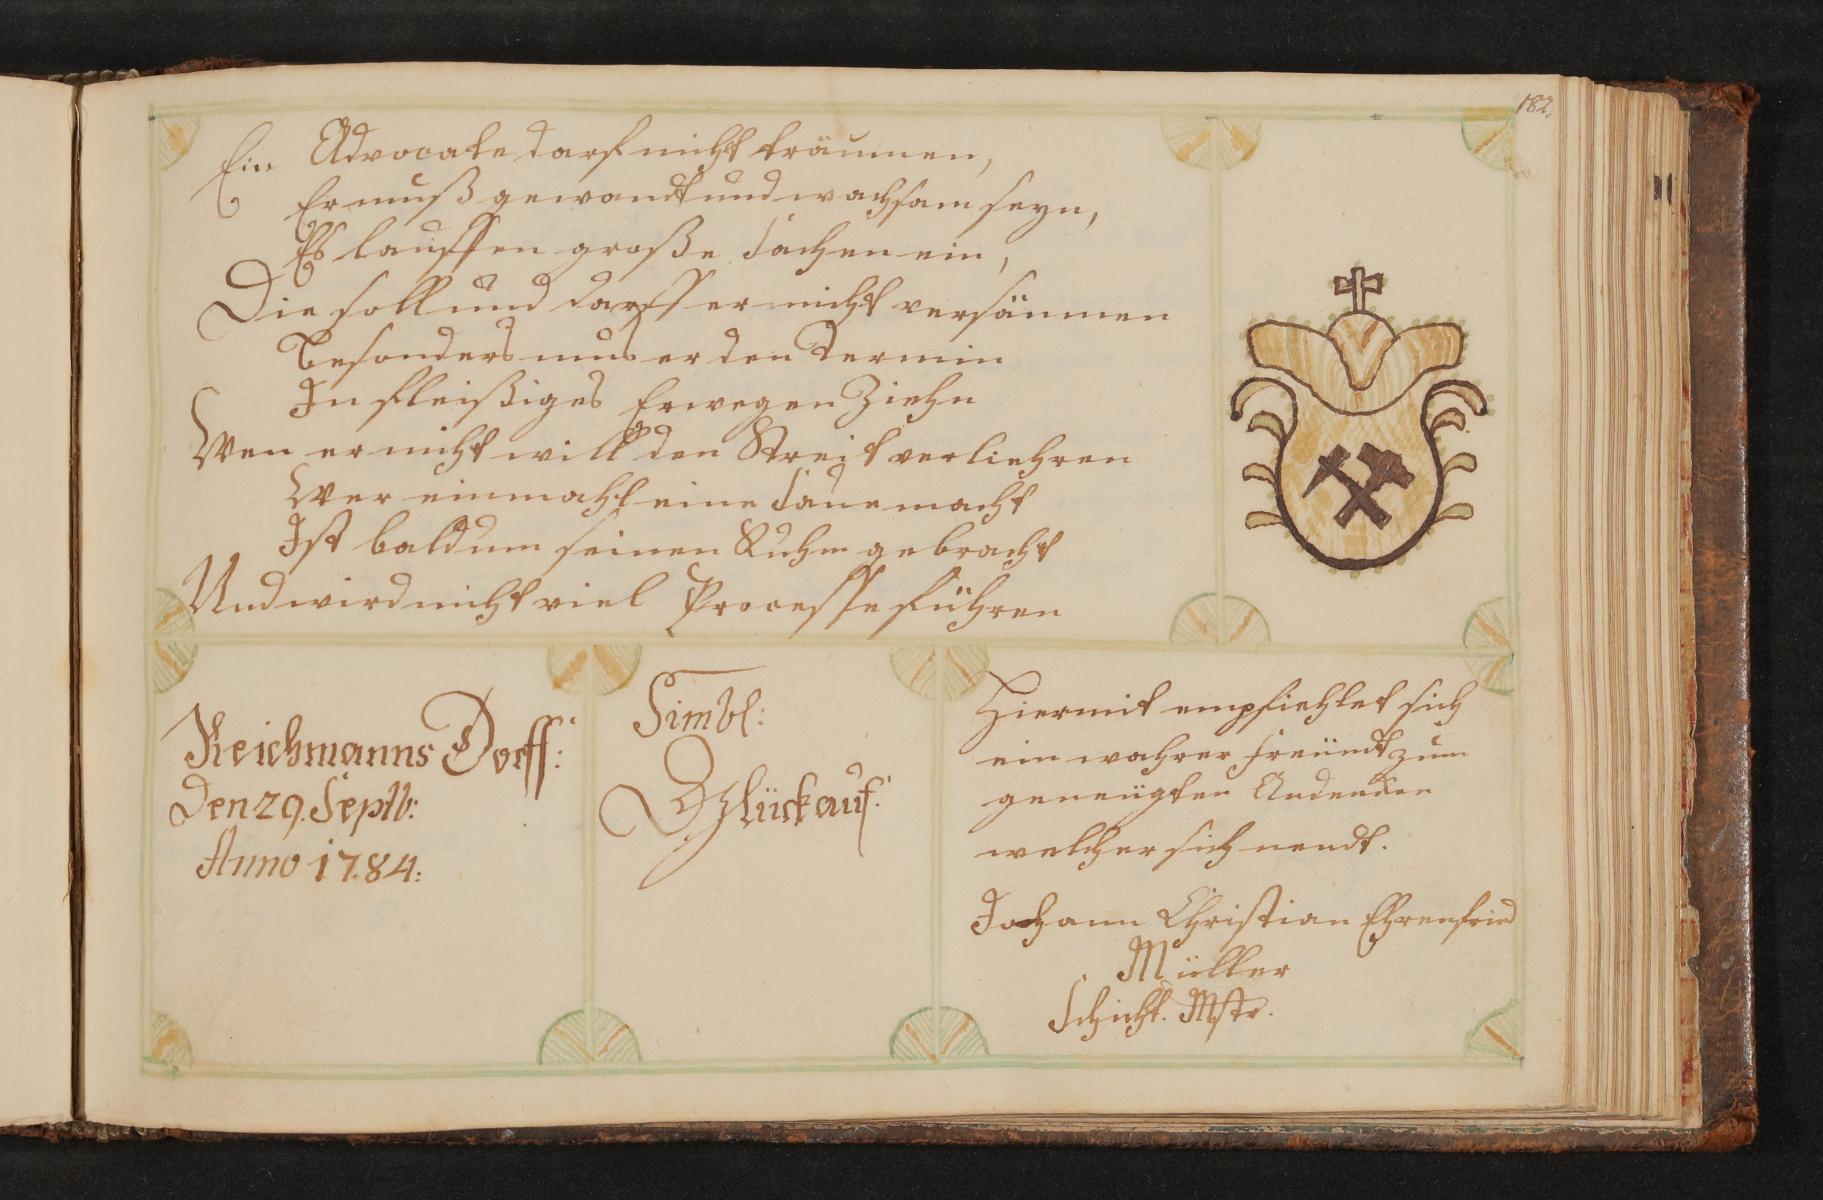 182.
Ein Advocate darf nicht träumen,
Er muß gewandt und wachsam seyn,
Es lauffen große Sachen ein,
Die soll und darff er nicht versäumen
Besonders mus er den Termin
In fleißiges Erwegen Ziehn
Wen er nicht will den Streit verliehren
Wer einmahl eine Saue macht
Ist bald um seinen Ruhm gebracht
Und wird nicht viel Processe führen
Reichmanns Dorff:
Den 29. Septb:
Anno 1784:
Simbl:
Glück auf:
Hiermit empfiehlet sich
ein wahrer Freündt zum
geneügten Andencken
welcher sich nendt.
Johann Christian Ehrenfried
Müller
Schicht. Mstr.